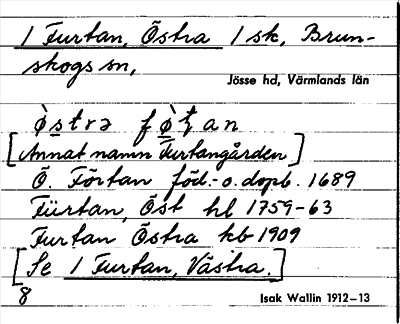 1 Furtan, Östra 1 sk, Brun-
skogs sn,
Jösse hd, Värmlands län
[Annat namn Furtangården]
Ö. Förtan föd.- o. dopb. 1689
Fürtan, Öst hl 1759-63
Furtan Östra kb 1909
[Se 1 Furtan, Västra.]
8
Isak Wallin 1912-13